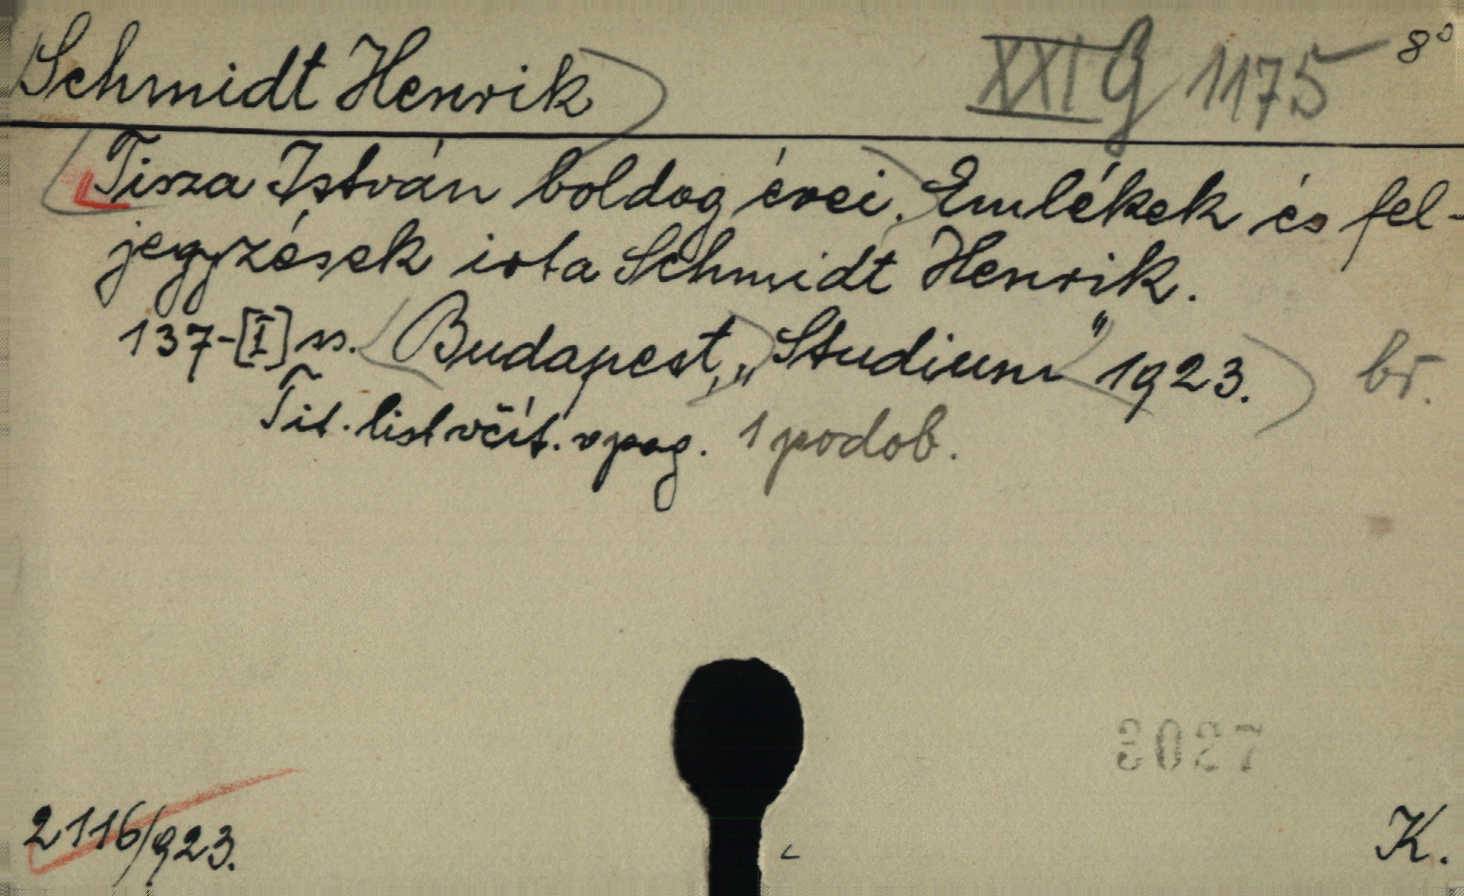 Schmidt Henrik
XXI G 1175
8°
Tisza István boldog évei. Emlékek és fel-
jegyzések irta Schmidt Henrik.
137-[I] ss. Budapest, „Studium" 1923.
br.
Tit. list včít. v pag. 1 podob.
3027
2116/923.
K.